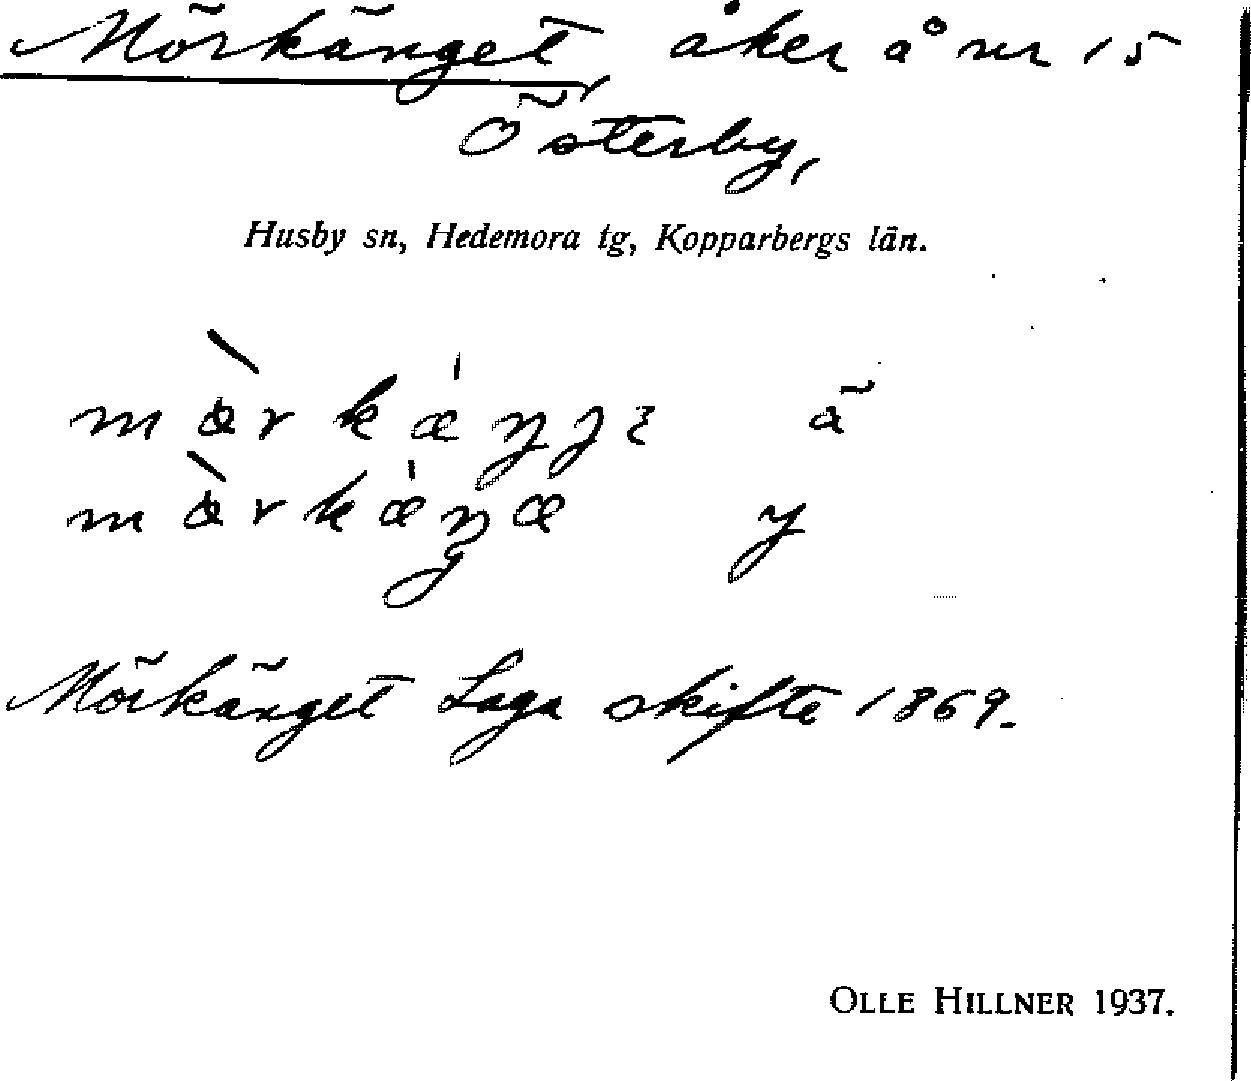 Mörkänget, åker å nr 15
Österby,
Husby sn, Hedemora tg, Kopparbergs län.
ä
y
Mörkänget Laga skifte 1869.
OLLE HILLNER 1937.